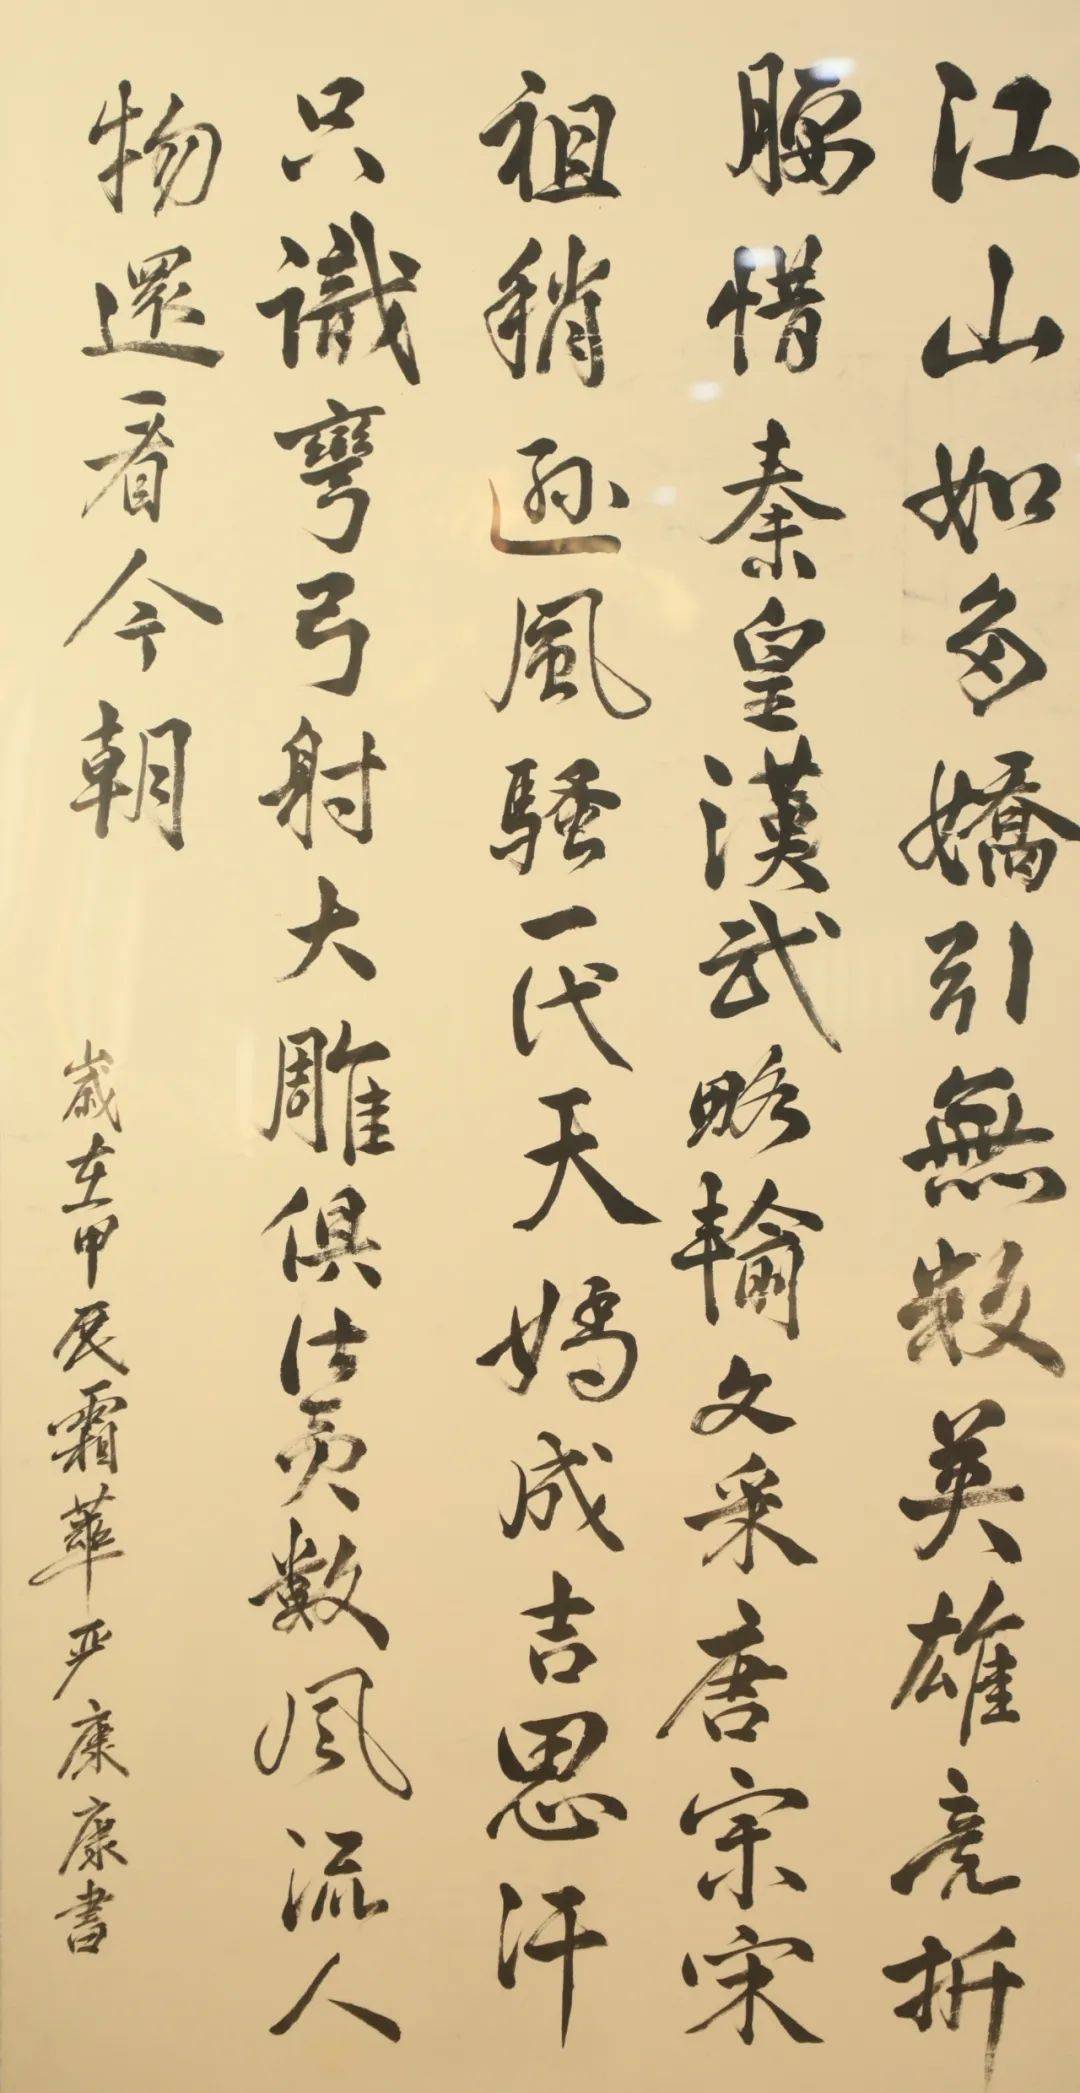 江山如多嬌引無數英雄竞折
腰惜秦皇漢武略輸文采唐宗宋
祖稍遜風騷一代天嬌成吉思汗
只識彎弓射大雕俱往矣數风流人
物還看今朝
歲在甲辰霜華严康康書